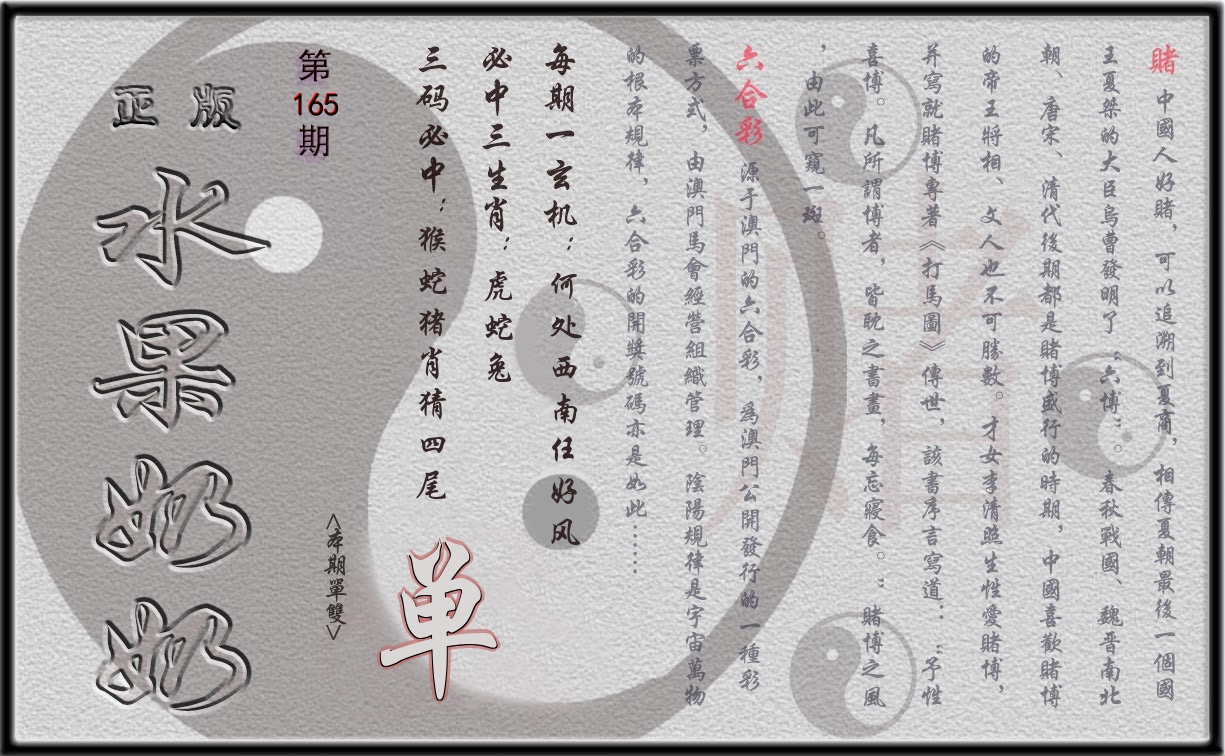 賭 中國人好賭，可以追溯到夏商，相傳夏朝最後一個國
王夏桀的大臣烏曹發明了“六博”。春秋戰國、魏晋南北
朝、唐宋、清代後期都是賭博盛行的時期，中國喜歡賭博
的帝王將相、文人也不可勝數。才女李清照生性愛賭博，
并寫就賭博專著《打馬圖》傳世，該書序言寫道：“予性
喜博。凡所謂博者，皆耽之晝畫，每忘寢食。”賭博之風
，由此可窺一斑。
六合彩 源于澳門的六合彩，為澳門公開發行的一種彩
票方式，由澳門馬會經營組織管理。陰陽規律是宇宙萬物
的根本規律，六合彩的開獎號碼亦是如此……
每期一玄机：何处西南任好风
必中三生肖：虎蛇兔
三码必中：猴蛇猪肖猜四尾
单
<本期單雙>
第
165
期
正版
水果奶奶
赌